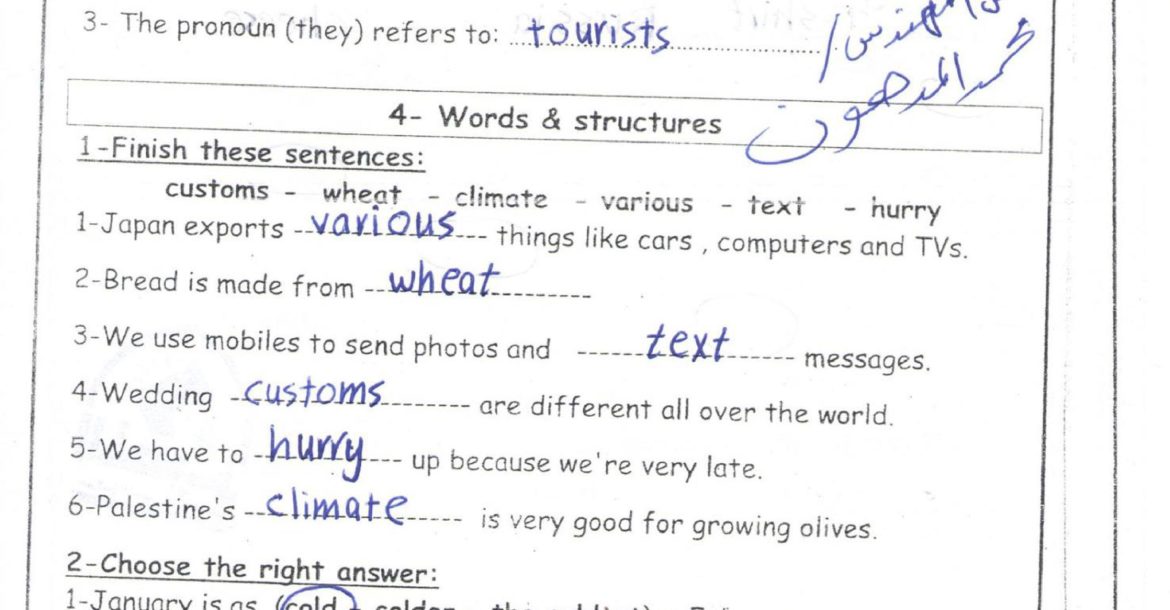 3- The pronoun (they) refers to: tourists
4- Words & structures
1-Finish these sentences:
customs - wheat - climate - various - text - hurry
1-Japan exports various things like cars , computers and TVs.
2-Bread is made from wheat
3-We use mobiles to send photos and text messages.
4-Wedding customs are different all over the world.
5-We have to hurry up because we're very late.
6-Palestine's climate is very good for growing olives.
2-Choose the right answer:
1-January is as (cold -